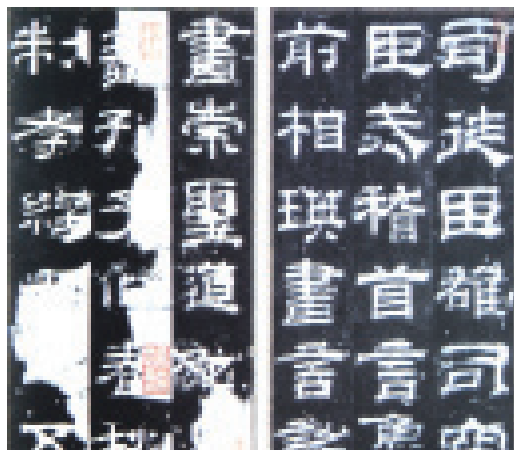 司徒臣雄司空
臣戒稽首言魯
前相瑛書言詔
書崇聖道勉
孔子作春
制孝經